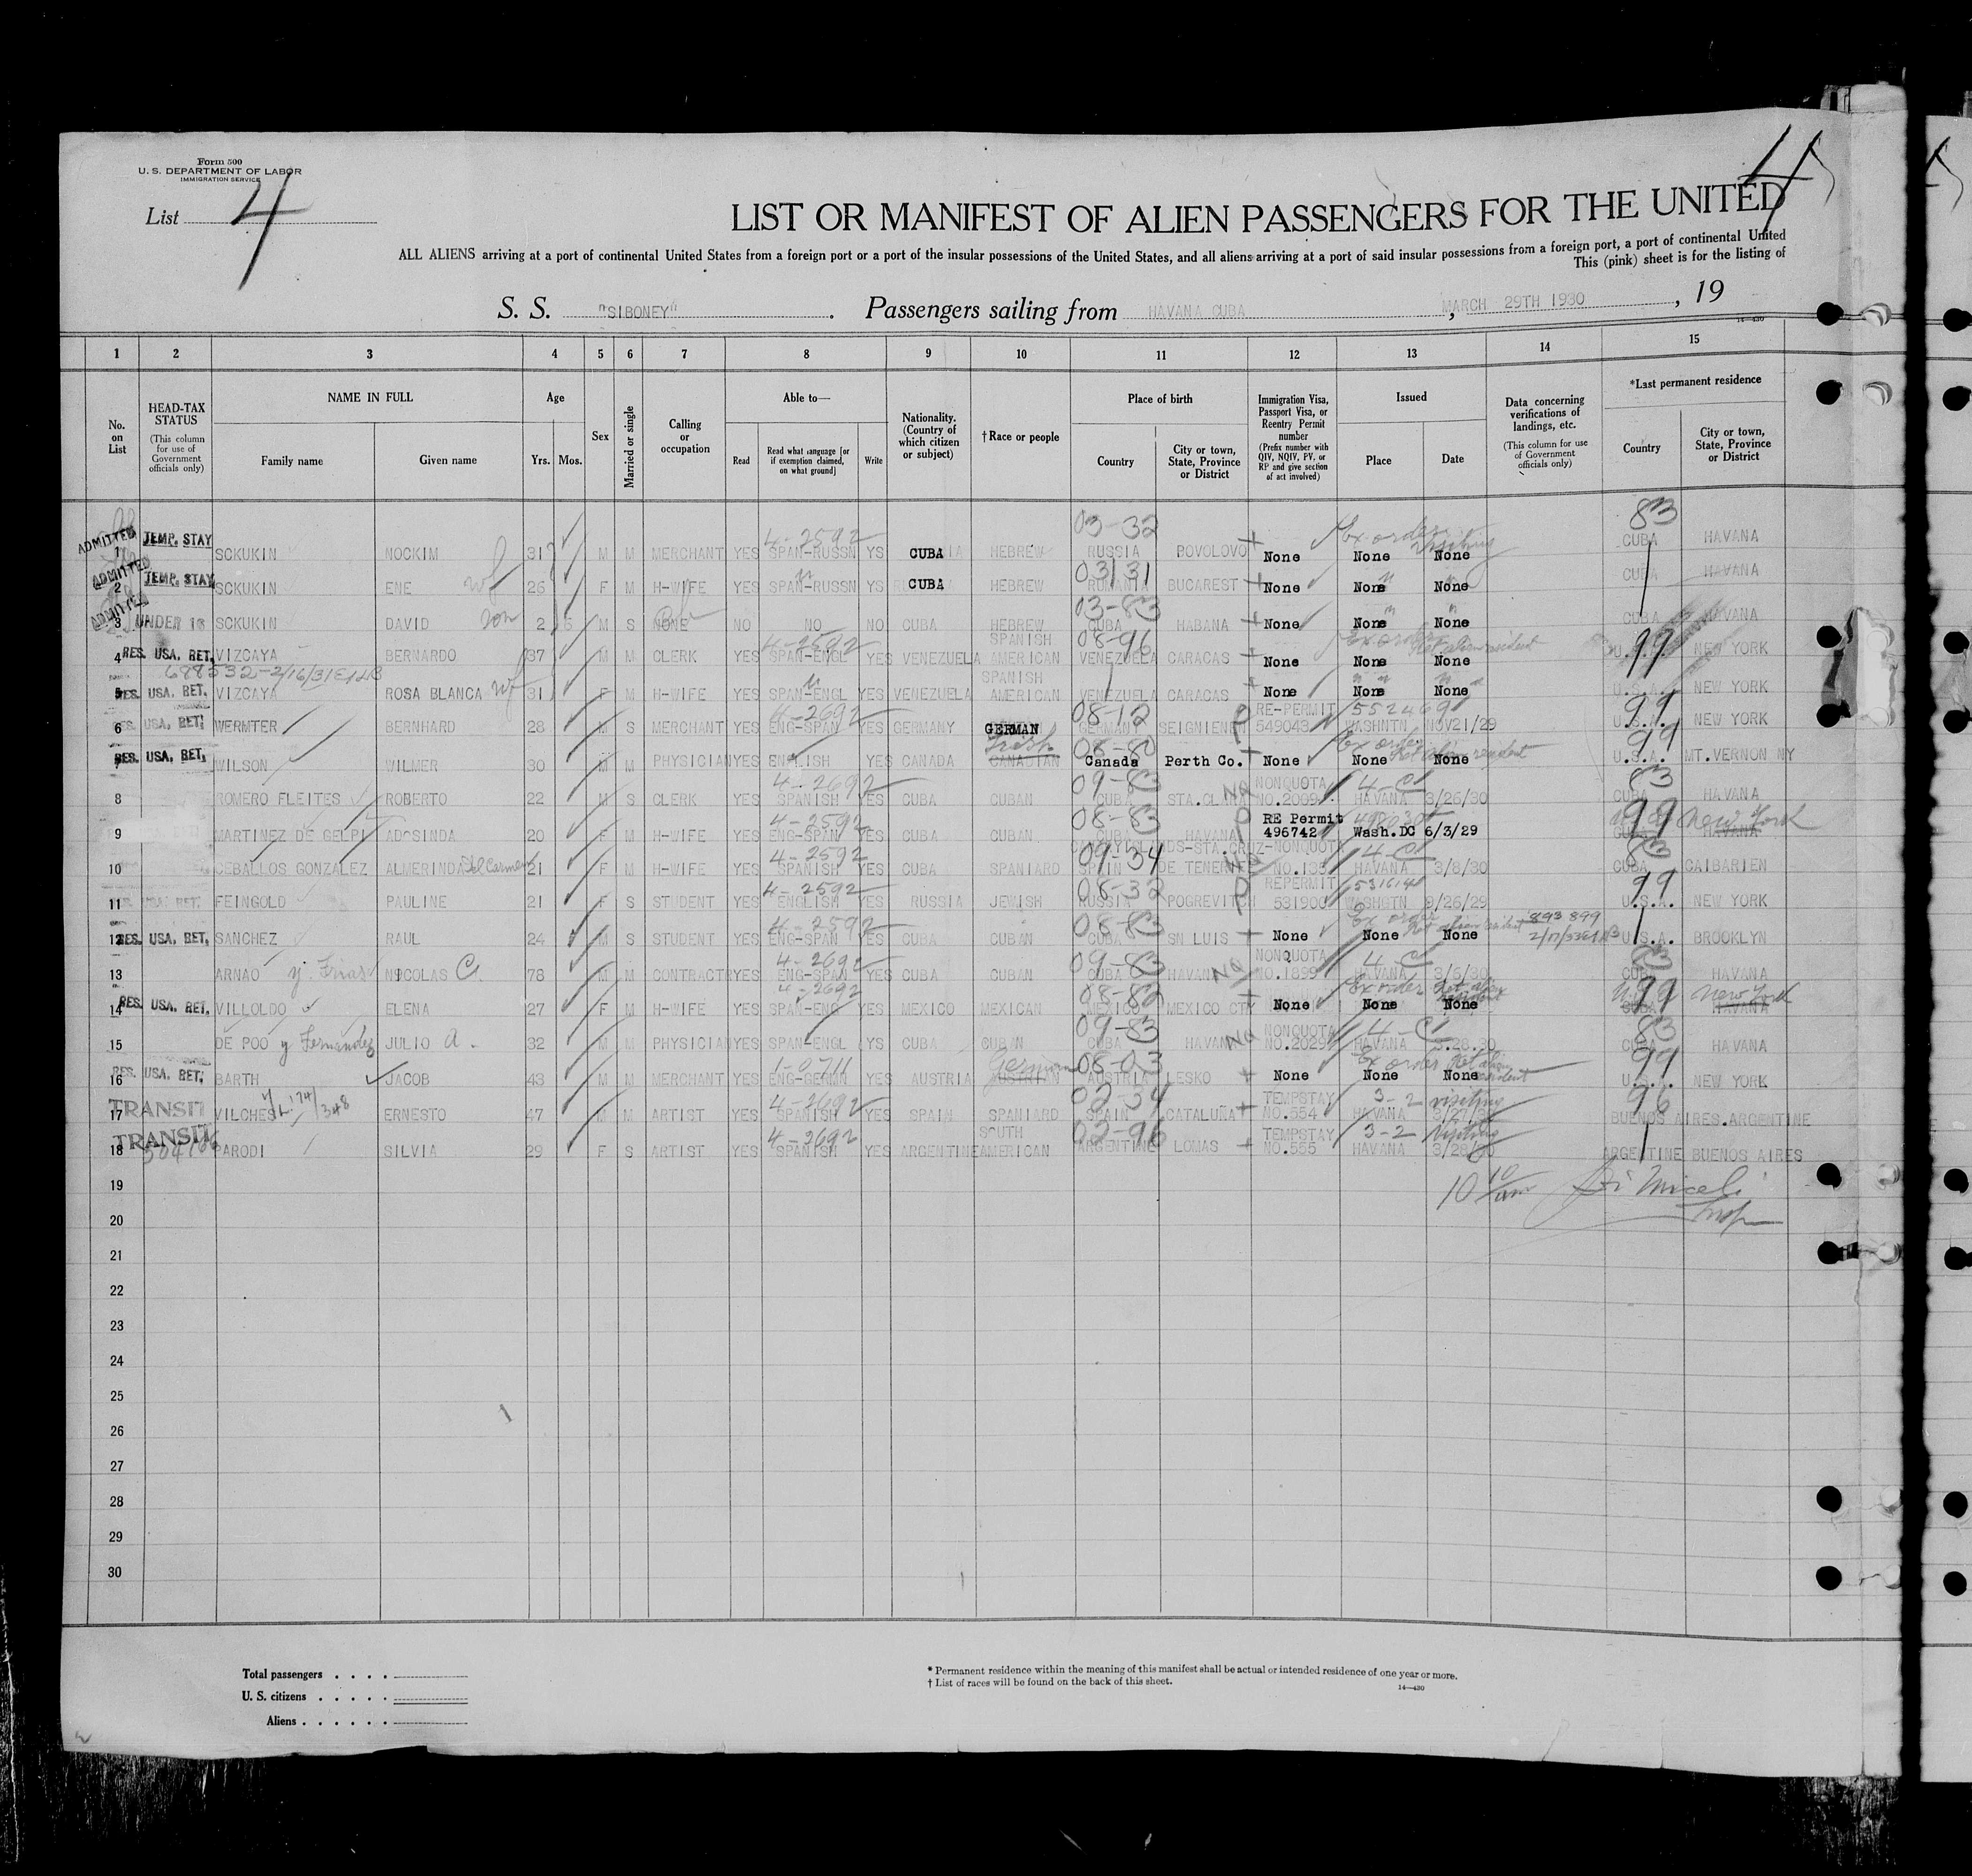 Form 500
U. S. DEPARTMENT OF LABOR
IMMIGRATION SERVICE
List 4
4
LIST OR MANIFEST OF ALIEN PASSENGERS FOR THE UNITED
ALL ALIENS arriving at a port of continental United States from a foreign port or a port of the insular possessions of the United States, and all aliens arriving at a port of said insular possessions from a foreign port, a port of continental United
This (pink) sheet is for the listing of
S. S. "SIBONEY". Passengers sailing from HAVANA CUBA, MARCH 29TH 1930, 19
14—430
1 2 3 4 5 6 7 8 9 10 11 12 13 14 15
No. on List
HEAD-TAX STATUS (This column for use of Government officials only)
NAME IN FULL
Family name
Given name
Age
Yrs. Mos.
Sex
Married or single
Calling or occupation
Able to—
Read
Read what language [or if exemption claimed, on what ground]
Write
Nationality. (Country of which citizen or subject)
†Race or people
Place of birth
Country
City or town, State, Province or District
Immigration Visa, Passport Visa, or Reentry Permit number (Prefix number with QIV, NQIV, PV, or RP and give section of act involved)
Issued
Place
Date
Data concerning verifications of landings, etc. (This column for use of Government officials only)
*Last permanent residence
Country
City or town, State, Province or District
4-2592 03-32 Ex order visiting 83
ADMITTED 1 TEMP. STAY SCKUKIN NOCKIM 31 M M MERCHANT YES SPAN-RUSSN YS CUBA HEBREW RUSSIA POVOLOVO None None None CUBA HAVANA
03/31
ADMITTED 2 TEMP. STAY SCKUKIN ENE wf 26 F M H-WIFE YES SPAN-RUSSN YS CUBA HEBREW RUMANIA BUCAREST None None None CUBA HAVANA
03-83
ADMITTED 3 UNDER 16 SCKUKIN DAVID son 2 6 M S NONE NO NO NO CUBA HEBREW CUBA HABANA None None None CUBA HAVANA
4-2592 08-96 Ex order Ret alien resident 99
4 RES. USA. RET. VIZCAYA BERNARDO 37 M M CLERK YES SPAN-ENGL YES VENEZUELA SPANISH AMERICAN VENEZUELA CARACAS None None None U.S.A. NEW YORK
688532-2/16/31
5 RES. USA. RET. VIZCAYA ROSA BLANCA wf 31 F M H-WIFE YES SPAN-ENGL YES VENEZUELA SPANISH AMERICAN VENEZUELA CARACAS None None None U.S.A. NEW YORK
4-2692 08-12 RE-PERMIT 552469 99
6 RES. USA. RET. WERMTER BERNHARD 28 M S MERCHANT YES ENG-SPAN YES GERMANY GERMAN GERMANY SEIGNIENE 549043 WASHNTN NOV21/29 U.S.A. NEW YORK
Irish 08-80 Ex order Ret alien resident 99
7 RES. USA. RET. WILSON WILMER 30 M M PHYSICIAN YES ENGLISH YES CANADA CANADIAN Canada Perth Co. None None None U.S.A. MT.VERNON NY
4-2692 09-83 NONQUOTA 4-C 83
8 ROMERO FLEITES ROBERTO 22 M S CLERK YES SPANISH YES CUBA CUBAN CUBA STA.CLARA NO.2009 HAVANA 3/26/30 CUBA HAVANA
4-2592 08-83 RE Permit 99 New York
9 MARTINEZ DE GELPI ADOSINDA 20 F M H-WIFE YES ENG-SPAN YES CUBA CUBAN CUBA HAVANA 496742 Wash.DC 6/3/29 CUBA HAVANA
4-2592 09-34 NONQUOTA 4-C 83
10 CEBALLOS GONZALEZ ALMERINDA del Carmen 21 F M H-WIFE YES SPANISH YES CUBA SPANIARD SPAIN STA.CRUZ DE TENERIFE NO.135 HAVANA 3/8/30 CUBA CAIBARIEN
4-2592 08-32 REPERMIT 531614 99
11 USA. RET. FEINGOLD PAULINE 21 F S STUDENT YES ENGLISH YES RUSSIA JEWISH RUSSIA POGREVITCH 531900 WASHGTN 9/26/29 U.S.A. NEW YORK
4-2592 08-83 Ex order Ret alien resident 893 899
12 RES. USA. RET. SANCHEZ RAUL 24 M S STUDENT YES ENG-SPAN YES CUBA CUBAN CUBA SN LUIS None None None U.S.A. BROOKLYN
4-2692 09-83 NONQUOTA 4-C 83
13 ARNAO y Frias NICOLAS C. 78 M M CONTRACTR YES ENG-SPAN YES CUBA CUBAN CUBA HAVANA NO.1899 HAVANA 3/6/30 CUBA HAVANA
4-2692 08-82 Ex order Ret alien resident 99 New York
14 RES. USA. RET. VILLOLDO ELENA 27 F M H-WIFE YES SPAN-ENG YES MEXICO MEXICAN MEXICO MEXICO CTY None None None CUBA HAVANA
09-83 NONQUOTA 4-C 83
15 DE POO y Fernandez JULIO A. 32 M M PHYSICIAN YES SPAN-ENGL YS CUBA CUBAN CUBA HAVANA NO.2029 HAVANA 3.28.30 CUBA HAVANA
1-0711 German 08-03 Ex order Ret alien resident 99
16 RES. USA. RET. BARTH JACOB 43 M M MERCHANT YES ENG-GERMN YES AUSTRIA AUSTRIAN AUSTRIA LESKO None None None U.S.A. NEW YORK
4-2692 02-34 TEMPSTAY 3-2 visiting 96
17 TRANSIT VILCHES ERNESTO 47 M M ARTIST YES SPANISH YES SPAIN SPANIARD SPAIN CATALUÑA NO.554 HAVANA 3/27/30 BUENOS AIRES.ARGENTINE
4-2692 SOUTH 02-96 TEMPSTAY 3-2 Visiting
18 TRANSIT PARODI SILVIA 29 F S ARTIST YES SPANISH YES ARGENTINE AMERICAN ARGENTINE LOMAS NO.555 HAVANA 3/28/30 ARGENTINE BUENOS AIRES
19 10 10/am
20 Insp
21
22
23
24
25
26
27
28
29
30
Total passengers . . . .
U. S. citizens . . . . .
Aliens . . . . . .
* Permanent residence within the meaning of this manifest shall be actual or intended residence of one year or more.
† List of races will be found on the back of this sheet.
14—430